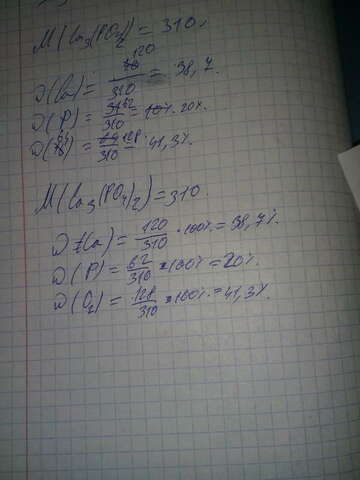 M(Ca₃(PO₄)₂) = 310.
ω(Ca) = 120/310 = 38,7.
ω(P) = 62/310 = 20%.
128/310 = 41,3%
M(Ca₃(PO₄)₂) = 310.
ω(Ca) = 120/310 · 100% = 38,7%
ω(P) = 62/310 · 100% = 20%.
ω(O₂) = 128/310 · 100% = 41,3%.